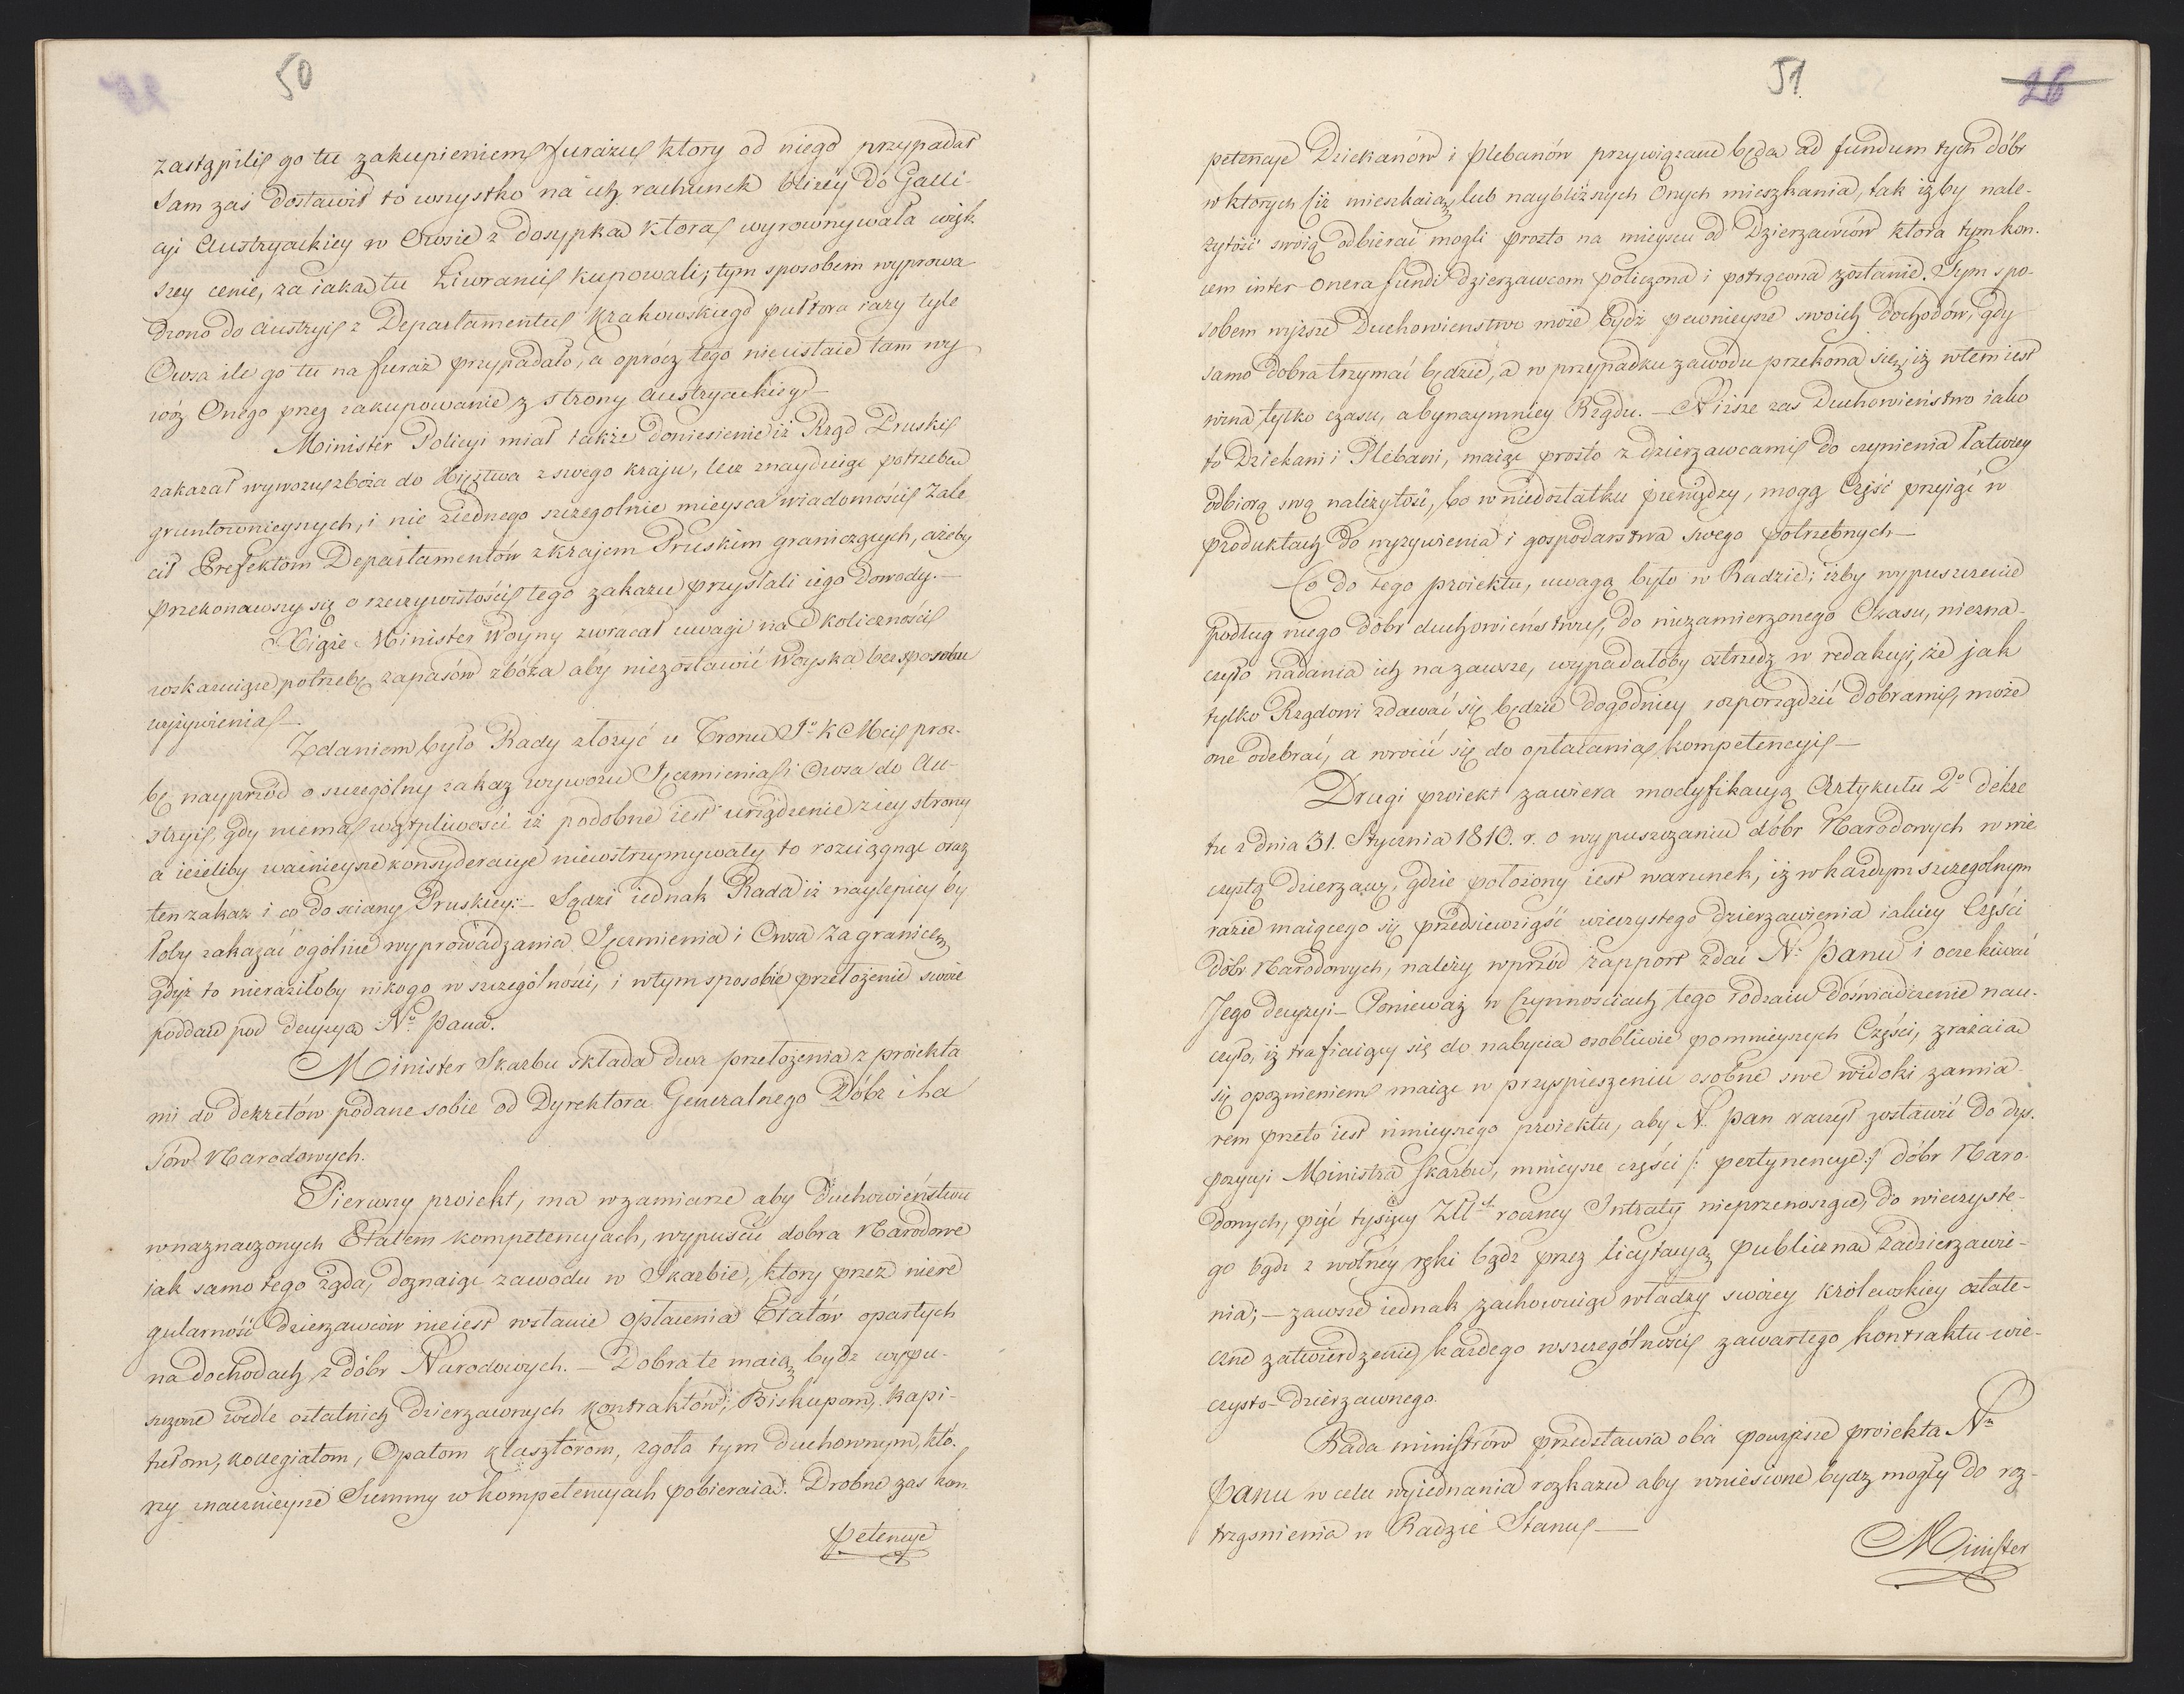 50
zastąpili go tu zakupieniem furażu ktory od niego przypadał
Sam zaś dostawił to wszystko na ich rachunek bliżey do Galli-
cyi Austryackiey w Owsie z dosypką ktora wyrownywała więk
szey cenie, za iaką tu Liwranci kupowali; tym sposobem wyprowa
dzono do Austryi z Departamentu Krakowskiego pułtora razy tyle
Owsa ile go tu na furaż przypadało, a oprócz tego nieustaie tam wy
wóz Onego przez zakupowanie z strony Austryackiey —
Minister Policyi miał także doniesienie iż Rząd Pruski
zakazał wywozu zboża do Xięztwa z swego kraju, lecz znayduiąc potrzebę
gruntownieyszych, i nie ziednego szczegolnie mieysca wiadomości zale
cił Prefektom Departamentów z krajem Pruskim graniczących, ażeby
przekonawszy się o rzeczywistości tego zakazu przysłali iego dowody. —
Xiąże Minister Woyny zwracał uwagę na okoliczności
wskazuiące potrzebę zapasów zbóża aby niezostawić Woyska bez sposobu
wyżywienia —.
Zdaniem było Rady złożyć u Tronu J.º K Mci proź-
bę nayprzód o szczególny zakaz wywozu Jęczmienia i Owsa do Au-
stryi, gdy niema wątpliwości iż podobne iest urządzenie z iey strony
a ieżeliby ważnieysze konsyderacye niewstrzymywały to rozciągnąc oraz
ten zakaz i co do sciany Pruskiey: — Sądzi iednak Rada iż naylepiey by
łoby zakazać ogólnie wyprowadzania Jęczmienia i Owsa za granicę
gdyż to nieraziłoby nikogo w szczególności, i wtym sposobie przełożenie swoie
poddaie pod decyzyą N.º Pana.
Minister Skarbu składa dwa przełożenia z proiekta
mi do dekretów podane sobie od Dyrektora Generalnego Dóbr i la
sów Narodowych.
Pierwszy proiekt, ma wzamiarze aby Duchowieństwu
wnaznaczonych Etatem kompetencyach, wypuscić dobra Narodowe
iak samo tego żąda, doznaiąc zawodu w Skarbie, ktory przez niere
gularność Dzierzawców nieiest wstanie opłacenia Etatów opartych
na dochodach z dóbr Narodowych. — Dobra te maią bydz wypu-
szczone wedle ostatnich Dzierzawnych kontraktów; Biskupom, Kapi-
tułom, kollegiatom, Opatom klasztorom, zgoła tym duchownym, któ.
rzy znacznieysze Summy w kompetencyach pobieraią. Drobne zas kom
petencye
51.
26
petencye Dziekanów i Plebanów przywiązane będą ad fundum tych dóbr
w ktorych ciż mieszkaią, lub naybliższych Onych mieszkania, tak iżby nale-
żytość swoią odbierać mogli prosto na mieyscu od Dzierzawców ktora tym koń.
cem inter onera fundi dzierzawcom policzona i potrącona zostanie. Tym spo-
sobem wyższe Duchowienstwo może bydź pewnieysze swoich dochodów, gdy
samo dobra trzymać będzie, a w przypadku zawodu przekona się, iż wtem iest
wina tylko czasu, a bynaymniey Rządu. — Niższe zas Duchowieństwo iako
to Dziekani i Plebani, maiąc prosto z dzierzawcami do czynienia łatwiey
odbiorą swą należytość, bo w niedostatku pieniędzy, mogą Część przyiąć w
produktach do wyżywienia i gospodarstwa swego potrzebnych —
Co do tego proiektu, uwagą było w Radzie; iżby wypuszczenie
podług niego dóbr duchowieństwu, do niezamierzonego Czasu, niezna-
czyło nadania ich na zawsze, wypadałoby ostrzedz w redakcyi, że jak
tylko Rządowi zdawać się będzie dogodniey rozporządzić dobrami, może
one odebrać, a wrócić się do opłacania kompetencyi —
Drugi proiekt zawiera modyfikacyą Artykułu 2º dekre
tu z dnia 31. Stycznia 1810. r. o wypuszczaniu dóbr Narodowych w wie
czystą dzierzawę, gdzie położony iest warunek, iż w każdym szczególnym
razie maiącego się przedsiewziąść wieczystego dzierzawienia iakiey Części
dóbr Narodowych, należy wprzód rapport zdać N.º Panu i oczekiwać
Jego decyzyi — Ponieważ w Czynnościach tego rodzaiu doświadczenie nau-
czyło, iż traficiący się do nabycia osobliwie pomnieyszych Części, zrażaią
się opoznieniem maiąc w przyspieszeniu osobne swe widoki zamia-
rem przeto iest ninieyszego proiektu, aby N. Pan raczył zostawić do dys-
pozycyi Ministra Skarbu, mnieysze części /: pertynencye :/ dóbr Naro-
dowych, pięć tysięcy Złł.ch roczney Intraty nieprzenoszące, do wieczyste-
go bądz z wolney ręki bądz przez licytacyą publiczną zadzierzawie-
nia; — zawsze iednak zachowuiąc władzy swoiey królewskiey ostate-
czne zatwierdzenie każdego wszczególności zawartego kontraktu wie-
czysto-Dzierzawnego.
Rada ministrów przedstawia oba powyższe proiekta N.u
Panu w celu wyiednania rozkazu aby wniesione bydz mogły do roz-
trząsnienia w Radzie Stanu —
Minister